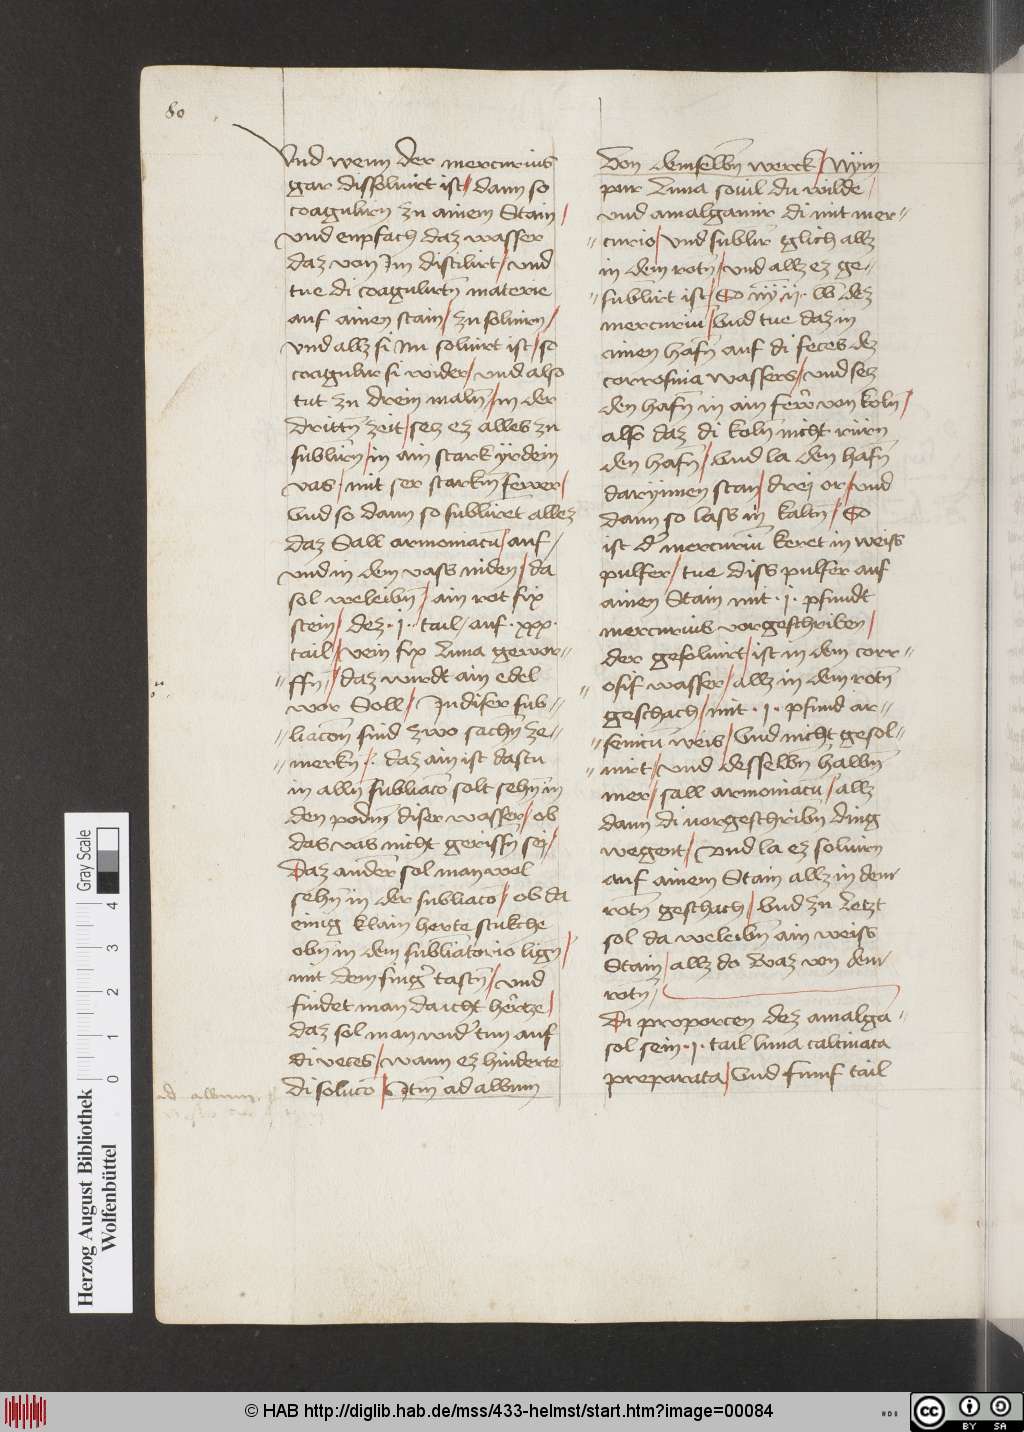 80
Vnd wenn der mercurius
gar dissoluirt ist / dann so
coagulirn zu ainem Stain /
vnd enpfach daz wasser
daz von Im distilirt / vnd
tue di coagulirtn̄ materie
auf ainen stain / zu soluirn /
vnd allz si nu soluirt ist / so
coagulir si wider / vnd also
tut zu drein maln̄ / in der
drittn̄ zeit / secz ez alles zu
sublirn̄ / in ain stark yrdein
vas / mit ser starkm̄ fewer /
Vnd so dann so sublirret allez
daz Sall armoniacū / auf /
vnd in dem vass niden / da
sol weleibn̄ / ain rot fix
stein / dez · j · tail / auf · xxx ·
tail / vein fix Luna gewor=
=ffn̄ / daz wurdt ain edel
wor Soll / In diser sub=
=liacōn sind zwo sachn̄ ze=
=merkn̄ / · daz ain ist dastu
in alln̄ subliacō solt sehn̄ in
den podm̄ diser wasser / ob
das vas nicht gerissn̄ sej /
Daz ander sol man wol
sehn̄ in der subliacō / ob da
einig klain herte stukche
obn̄ in dem subliatorio lign̄ /
mit dem fing' tastn̄ / vnd
findet man da icht hertze /
daz sol man wid' tun auf
di veces / wann ez hinderte
di solucō / Itm̄ ad album
ad album
Von demselbn̄ werck / Nym
pur Luna souil du wilde /
vnd amalgamir di mit mer=
=curio / vnd sublir' glich allz
in dem rotn̄ / vnd allz ez ge=
=sublirt ist / So nȳ ij · lb dez
mercuriū / Vnd tue daz in
ainen hafn̄ auf di feces dez
corrosiuia wassers / vnd secz
den hafn̄ in ain fewr von koln̄ /
also daz di koln̄ nicht rürn
den hafn̄ / Vnd la den hafn̄
darynnen stan / drej or / vnd
dann so lass in kaltn̄ / So
ist d' mercuriū keret in weiss
pulfer / tue diss pulfer auf
ainen Stain mit · j · pfundt
mercurius vorgeschriben /
der gesoluirt / ist in dem corr=
=osif wasser / allz in dem rotn̄
geschach / mit · j · pfund ar=
=senicū weis / Vnd nicht gesol=
=uirt / vnd desselbn̄ halbn̄
mer / sall armoniacū / allz
dann di vorgeschribn̄ ding
wegent / Vnd la ez soluirn
auf ainem Stain allz in dem
rotn̄ geschach / Vnd zu Letzt
sol da weleibn̄ ain weiss
Stain / allz do Waz von dem
rotn̄ /
Di proporcen dez amalga=
sol sein · j · tail luna calcinata
preparata / Vnd funf tail
Herzog August Bibliothek
Wolfenbüttel
Gray Scale
0 1 2 3 4
© HAB http://diglib.hab.de/mss/433-helmst/start.htm?image=00084
cc BY SA